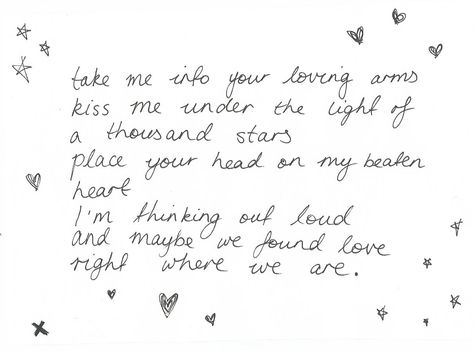 take me into your loving arms
kiss me under the light of
a thousand stars
place your head on my beaten
heart
I'm thinking out loud
and maybe we found love
right where we are.